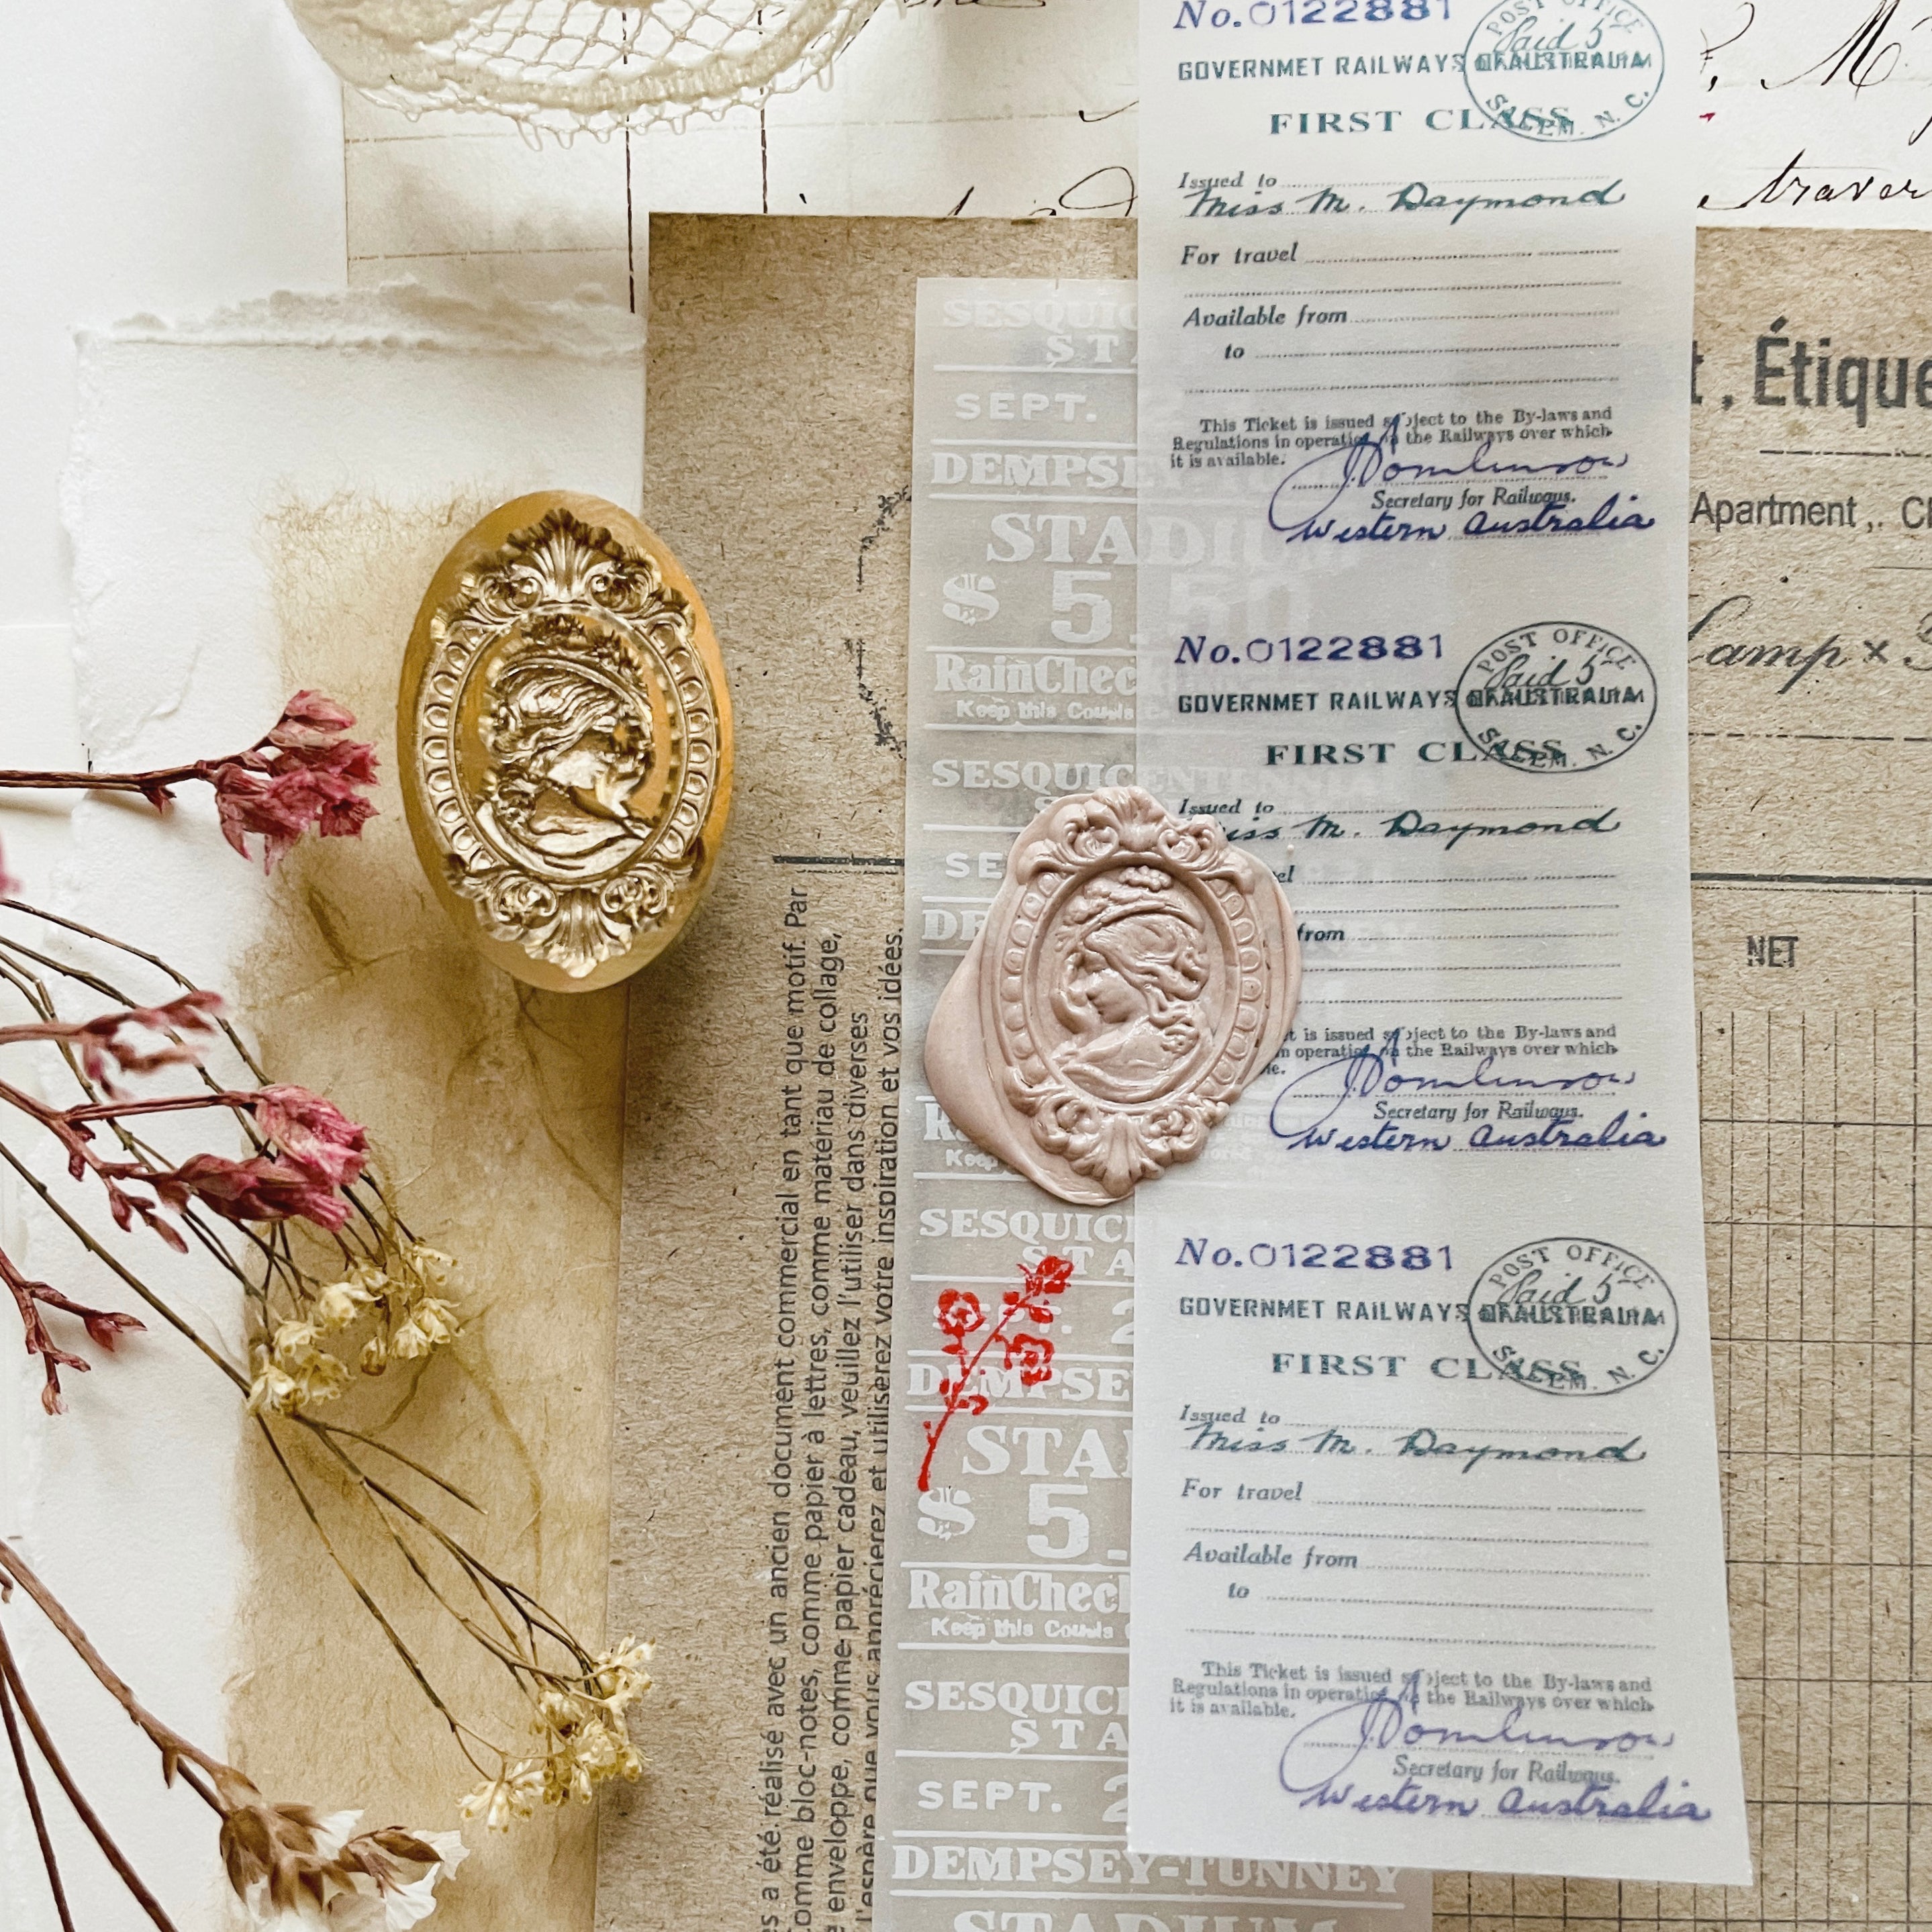 No.0122881
GOVERNMET RAILWAYS OF AUSTRALIA
POST OFFICE
Paid 5
SALEM. N. C.
FIRST CLASS
Issued to
Miss M. Daymond
For travel
Available from
to
This Ticket is issued subject to the By-laws and
Regulations in operation on the Railways over which
it is available.
J Tomlinson
Secretary for Railways.
Western Australia
No.0122881
GOVERNMET RAILWAYS OF AUSTRALIA
POST OFFICE
Paid 5
SALEM. N. C.
FIRST CLASS
Issued to
Miss M. Daymond
el
from
t is issued subject to the By-laws and
n operation on the Railways over which
le.
J Tomlinson
Secretary for Railways.
Western Australia
No.0122881
GOVERNMET RAILWAYS OF AUSTRALIA
POST OFFICE
Paid 5
SALEM. N. C.
FIRST CLASS
Issued to
Miss M. Daymond
For travel
Available from
to
This Ticket is issued subject to the By-laws and
Regulations in operation on the Railways over which
it is available.
J Tomlinson
Secretary for Railways.
Western Australia
SESQUIC
STA
SEPT.
DEMPSEY
STADIUM
$ 5.50
RainCheck
Keep this
SESQUICENTENNIAL
S
SE
DE
Ra
Keep
SESQUIC
STA
2
DEMPSE
STA
$ 5.
RainCheck
Keep this
SESQUIC
STA
SEPT. 2
DEMPSEY-TUNNEY
STADIUM
s a été réalisé avec un ancien document commercial en tant que motif. Par
omme bloc-notes, comme papier à lettres, comme matériau de collage,
enveloppe, comme papier cadeau, veuillez l'utiliser dans diverses
l'espère que vous apprécierez et utiliserez votre inspiration et vos idées.
M
traver
t, Étique
Apartment,. Cl
Lamp ×
NET